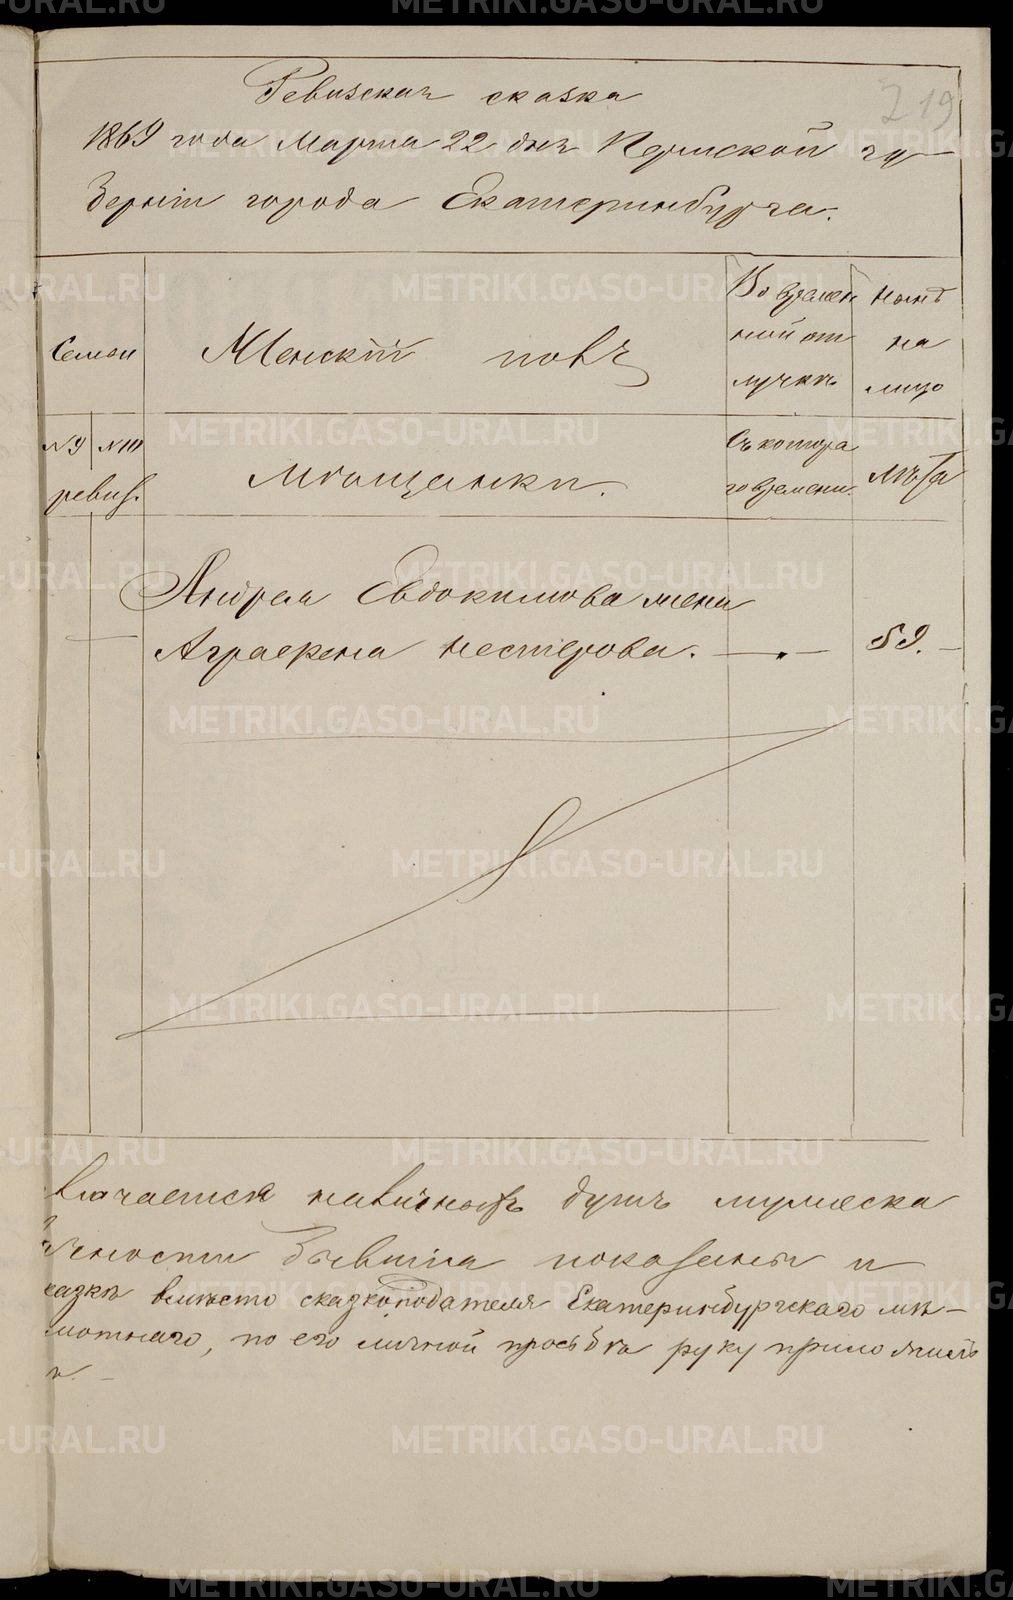 219
Ревизская сказка
1869 года Марта 22 дня Пермской гу-
берніи города Екатеринбурга.
Семьи
Женскій полъ
Во времен
ной от
лучкѣ
Нынѣ
на
лицо
№ 9 № 10
ревиз.
Мѣщанки.
Съ котора
го времени.
Лѣта
Андрея Евдокимова жена
Аграфена Нестерова. — „ — 59. —
ключается наличныхъ душъ мужеска
бывшіа показаны и
казкѣ вмѣсто сказкоподателя Екатеринбургскаго мѣ-
мотнаго, по его личной прозьбѣ руку приложилъ
METRIKI.GASO-URAL.RU